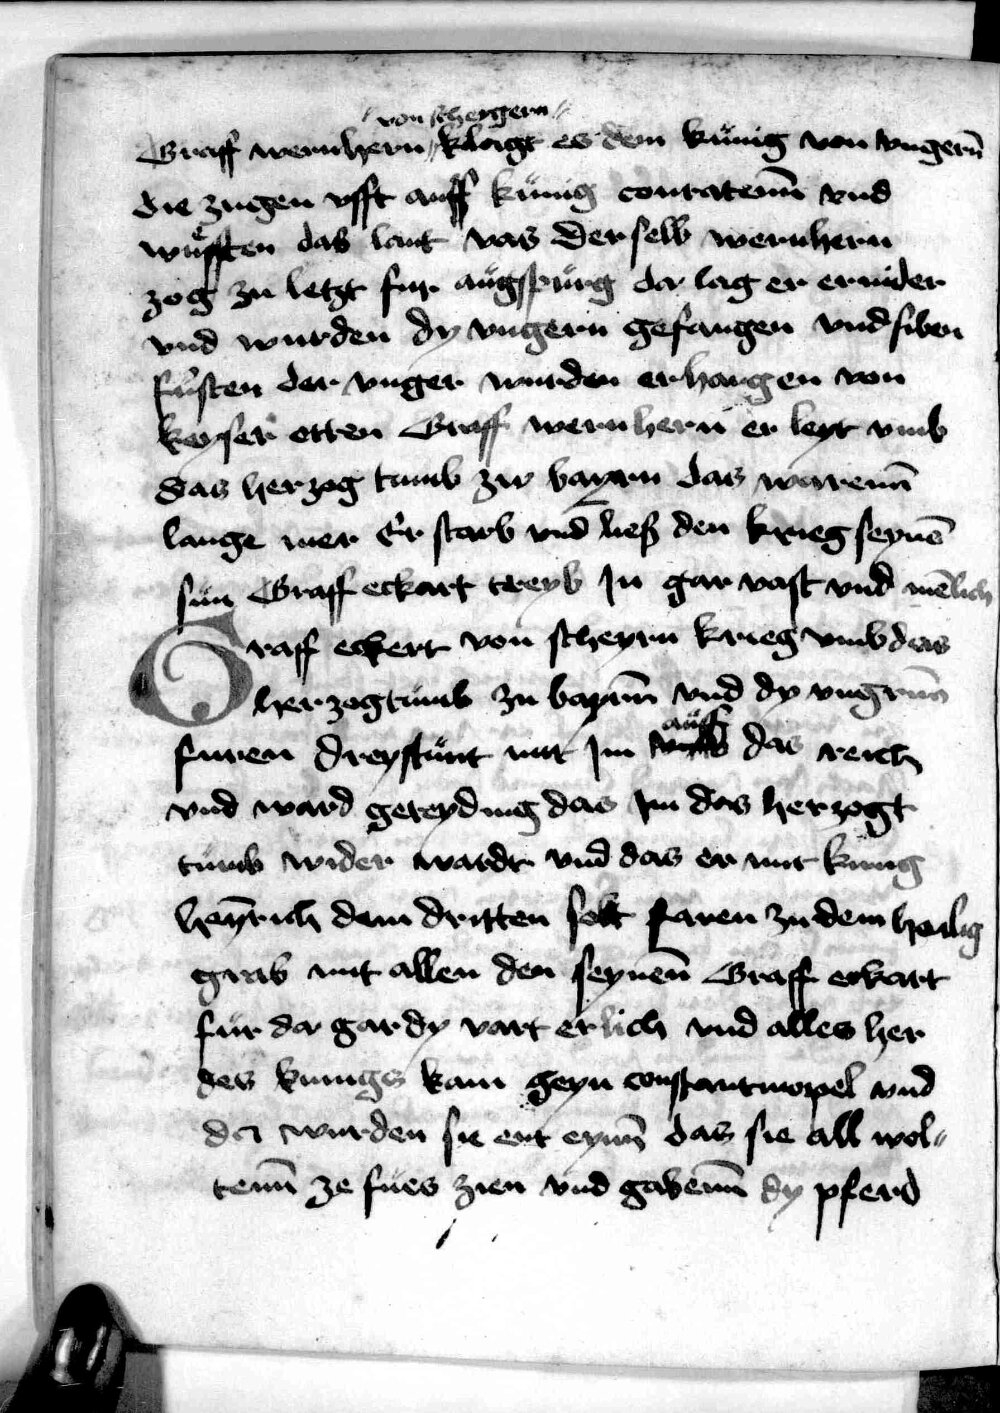 von scheygern
Graff wernhern klagt es dem kunig von vngerñ
die zugen vfft auff kunig conratenn vnd
wüsten das lant vas der selb wernhern
zog zu letzt fur augspurg da lag er ernider
vnd wurden dy vngern gefangen vnd siben
fursten der vnger wurden erhangen von
keyser otten Graff wernhern er leyt vmb
das herzog tumb zw bayrn das warenn
lange mer Er starb vnd ließ den krieg seynē
sun Graff eckart treyb In gar vast vnd mēlich
Graff eckert von scheyrn krieg vmb das
herzogtumb zu bayrnn vnd dy vngrnn
furen dreystunt mit Im auff das reich
vnd ward geteyding das Im das herzogt
tumb wider wardt vnd das er mit kunig
heyñrich dem dritten solt faren zu dem heilig
grab mit allen den seynenn Graff eckart
fur da gar dy vart erlich vnd alles her
des kunigs kam geyn constantinopel vnd
da wurden sie ent eynn das sie all wol-
tenn ze fues zien vnd gabenn dy pferd